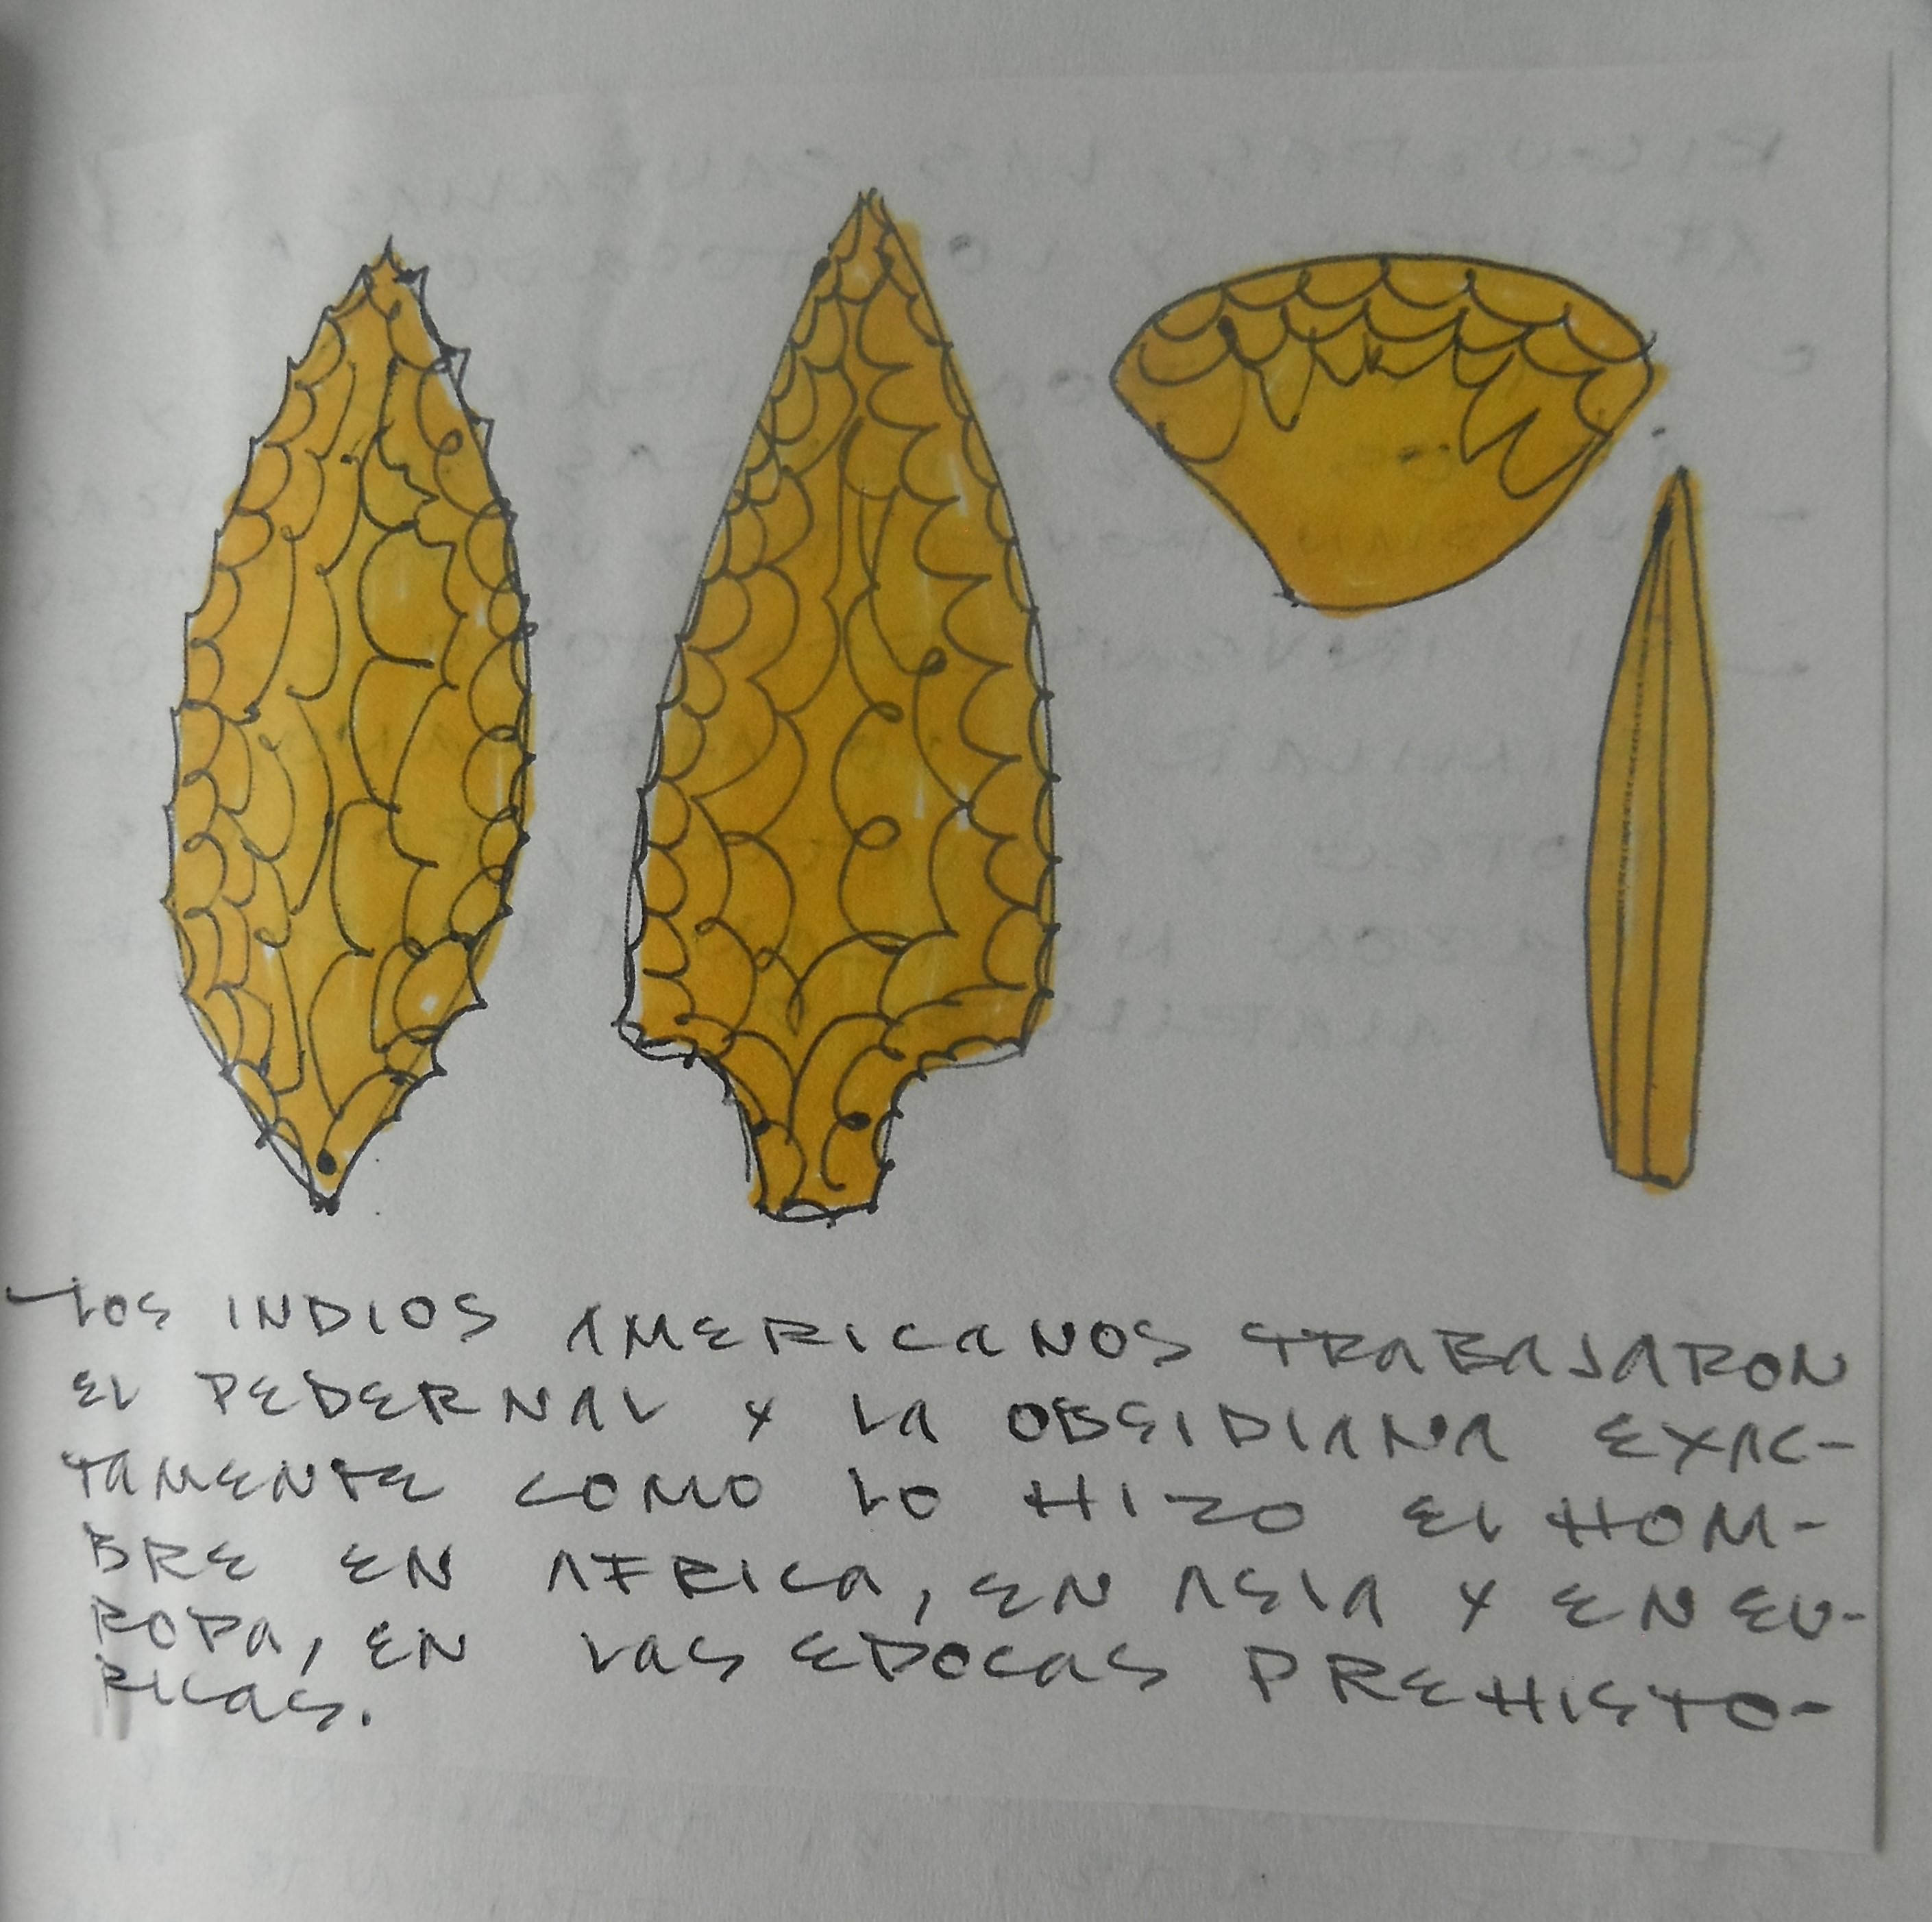 —LOS INDIOS AMERICANOS TRABAJARON
EL PEDERNAL Y LA OBSIDIANA EXAC-
TAMENTE COMO LO HIZO EL HOM-
BRE EN AFRICA, EN ASIA Y EN EU-
ROPA, EN LAS EPOCAS PREHISTO-
RICAS.